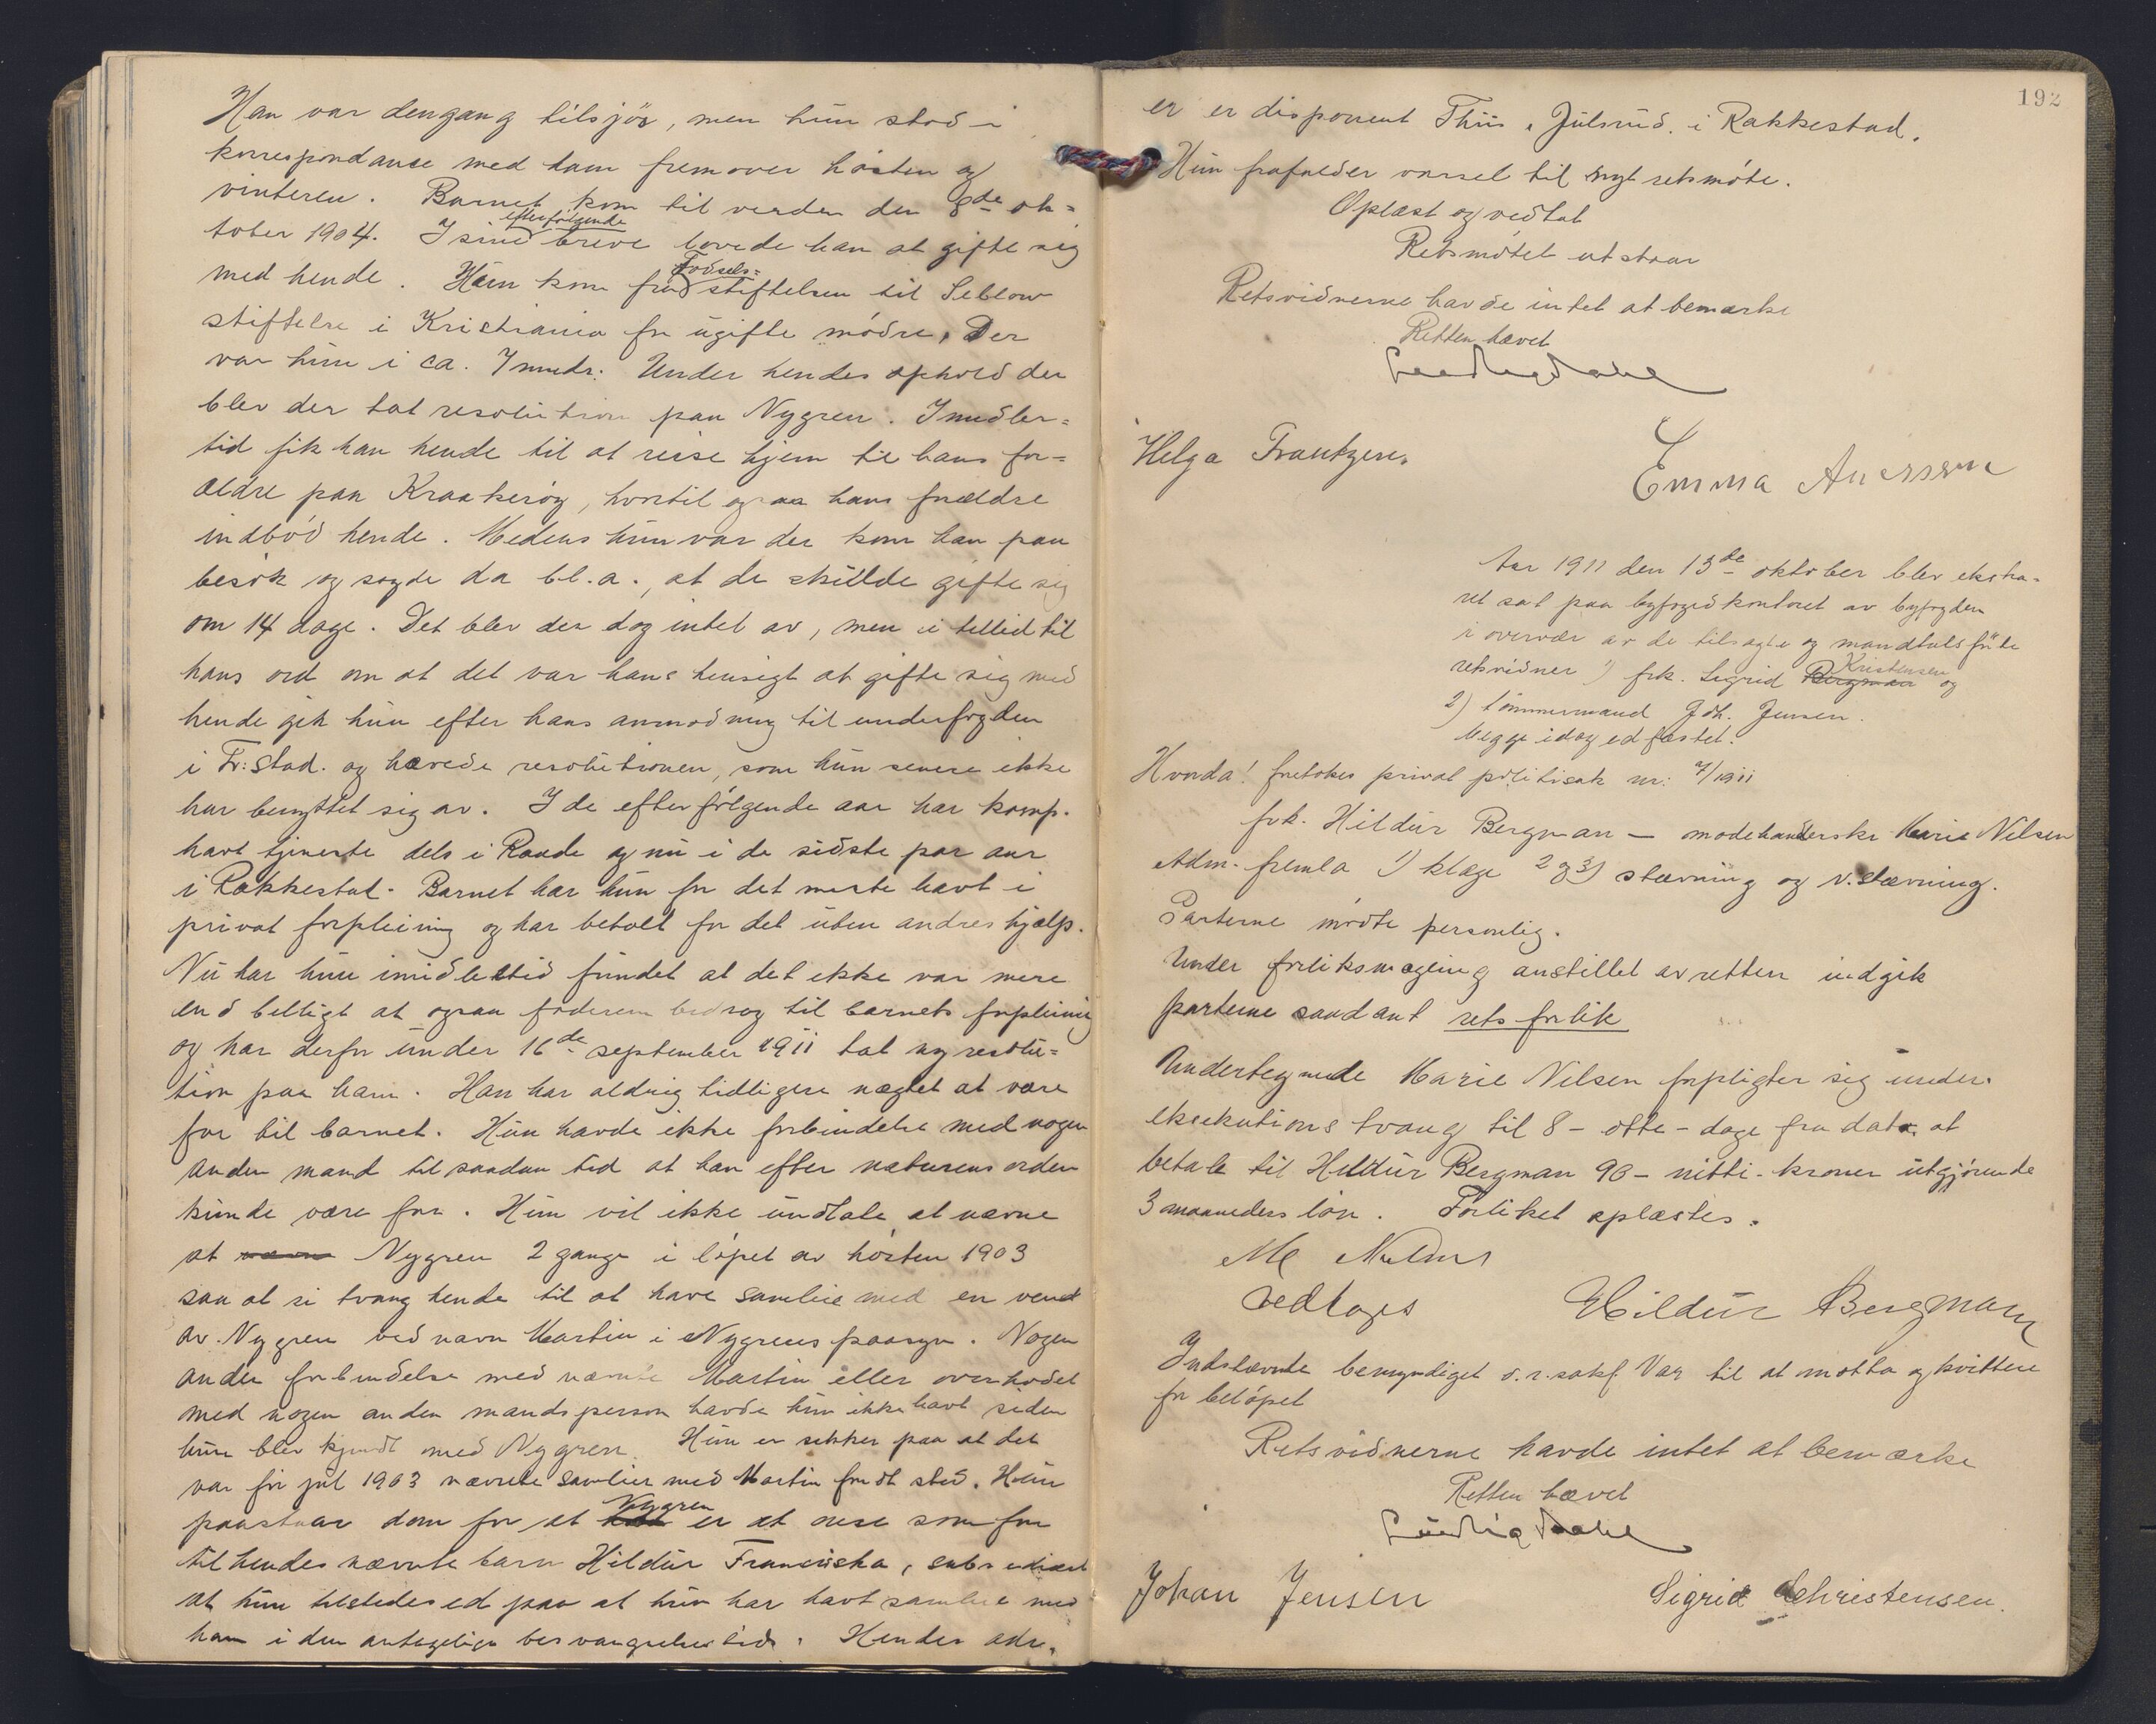 Han var dengang tilsjös, men hun stod i
korrespondanse med ham fremover hösten og
vinteren. Barnet kom til verden den 8de ok=
tober 1904. I sine efterfölgende breve lovede han at gifte sig
med hende. Hun kom fra Födsels= stiftelsen til Seblow
stiftelse i Kristiania for ugifte mödre. Der
var hun i ca. 7 mndr. Under hendes ophold der
blev der tat resolution paa Nygren. Imidler=
tid fik han hende til at reise hjem til hans for=
ældre paa Kraakeröy, hvortil ogsaa hans forældre
indböd hende. Medens hun var der kom han paa
besök og sagde da bl.a., at de skulde gifte sig
om 14 dage. Det blev der dog intet av, men i tillid til
hans ord om at det var hans hensigt at gifte sig med
hende gik hun efter hans anmodning til underfogden
i Fr:stad. og hævede resolutionen, som hun senere ikke
har benyttet sig av. I de efterfölgende aar har komp.
havt tjeneste dels i Raade og nu i de sidste par aar
i Rakkestad. Barnet har hun for det meste havt i
privat forpleining og har betalt for det uten andres hjælp.
Nu har hun imidlertid fundet at det ikke var mere
end billigt at ogsaa faderen bidrog til barnets forpleining
og har derfor under 16de september 1911 tat ny resolu=
tion paa ham. Han har aldrig tidligere nægtet at være
far til barnet. Hun havde ikke forbindelse med nogen
anden mand til saadan tid at han efter naturens orden
kunde være far. Hun vil ikke undlate at nævne
at nævne Nygren 2 gange i löpet av hösten 1903
saa at si tvang hende til at have samleie med en vend
av Nygren ved navn Martin i Nygrens paasyn. Nogen
anden forbindelse med nævnte Martin eller overhodet
med nogen anden mandsperson havde hun ikke havt siden
hun blev kjendt med Nygren. Hun er sikker paa at det
var för jul 1903 nævnte samleie med Martin fandt sted. Hun
paastaar dom for at Nygren er at anse som far
til hendes nævnte barn Hildur Franciska, subsidiært
at hun tilstedes ed paa at hun har havt samleie med
ham i den antagelige besvangrelsestid. Hendes adr.
192
er er disponent Thiis, Julsrud, i Rakkestad.
Hun frafalder varsel til nyt retsmöte.
Oplæst og vedtat
Retsmötet utstaar
Retsvidnerne havde intet at bemærke
Retten hævet
Ludvig Dahl
Helga Frantzen.
Emma Anerssen
Aar 1911 den 13de oktober blev ekstra=
ret sat paa byfogedkontoret av byfogden
i overvær av de tilsagte og mandtalsförte
retsvidner 1) frk. Sigrid Bergman Kristensen og
2) tömmermand Joh. Jensen.
begge idag edfæstet.
Hvorda! foretokes privat politisak nr: 7/1911
frk. Hildur Bergman – modehandlerske Marie Nilsen
Adm. fremla 1) klage 2 og 3) stævning og v. stævning.
Parterne mödte personlig.
Under forliksmægling anstillet av retten indgik
parterne saadant rets forlik
Undertegnede Marie Nilsen forpligter sig under
eksekutions tvang til 8 – otte – dage fra dato at
betale til Hildur Bergman 90 – nitti – kroner utgjörende
3 maaneders lön. Forliket oplæstes.
M Nilsen
vedtages Hildur Bergman
Indstævnte bemyndiget o.r.sakf. Vaz til at motta og kvittere
for belöpet
Retsvidnerne havde intet at bemærke
Retten hævet
Ludvig Dahl
Johan Jensen
Sigrid Christensen.